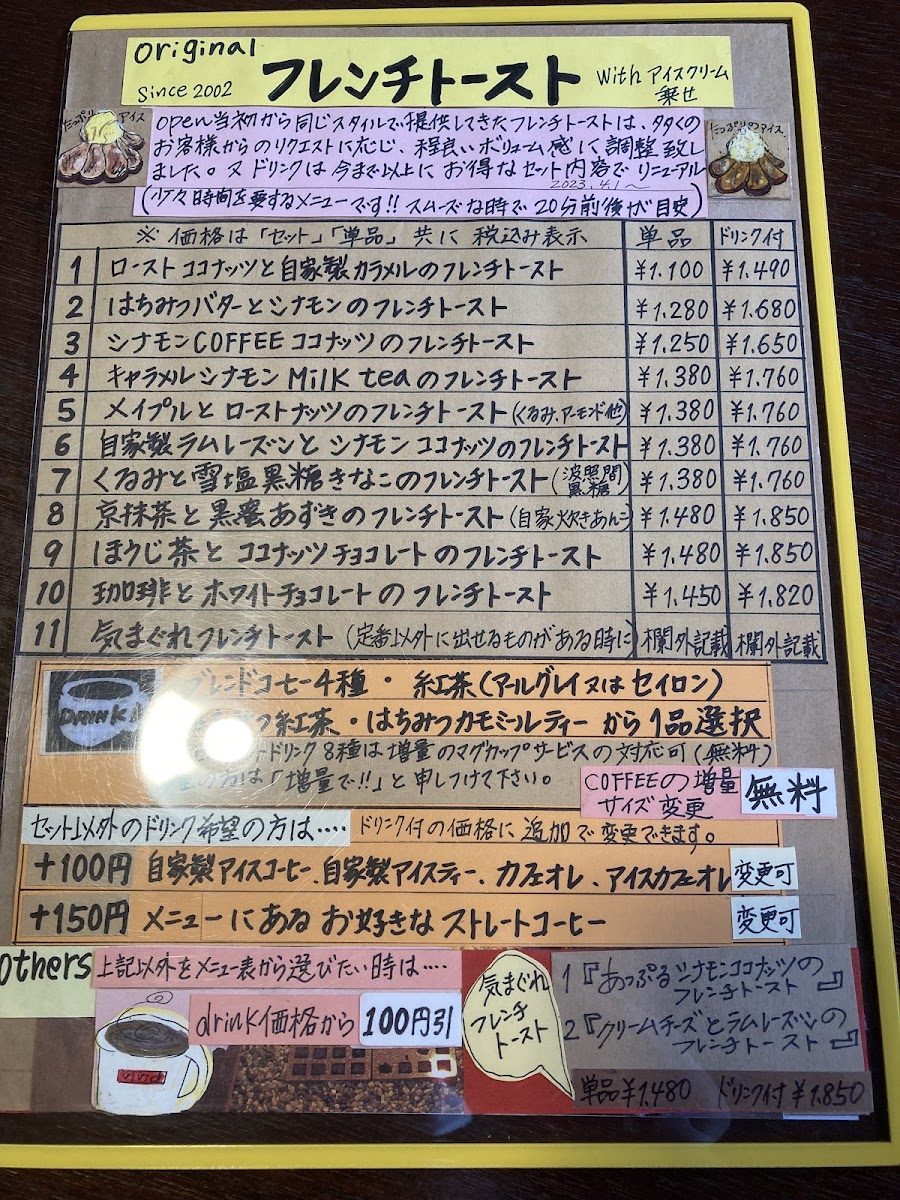 Original
Since 2002
フレンチトースト
with アイスクリーム
乗せ
たっぷり アイス
たっぷりのアイス
open当初から同じスタイルで提供してきたフレンチトーストは、多くの
お客様からのリクエストに応じ、程良いボリューム感に調整致し
ました。又ドリンクは今まで以上にお得なセット内容でリニューアル
2023.4.1〜
(少々時間を要するメニューです!! スムーズな時で20分前後が目安)
※ 価格は「セット」「単品」共に 税込み表示 単品 ドリンク付
1 ローストココナッツと自家製カラメルのフレンチトースト ¥1.100 ¥1.490
2 はちみつバターとシナモンのフレンチトースト ¥1.280 ¥1.680
3 シナモンCOFFEEココナッツのフレンチトースト ¥1.250 ¥1.650
4 キャラメルシナモン Milk teaのフレンチトースト ¥1.380 ¥1.760
5 メイプルとローストナッツのフレンチトースト(くるみ、アーモンド他) ¥1.380 ¥1.760
6 自家製ラムレーズンとシナモンココナッツのフレンチトースト ¥1.380 ¥1.760
7 くるみと雪塩黒糖きなこのフレンチトースト(波照間黒糖) ¥1.380 ¥1.760
8 京抹茶と黒蜜あずきのフレンチトースト(自家炊きあんこ) ¥1.480 ¥1.850
9 ほうじ茶とココナッツチョコレートのフレンチトースト ¥1.480 ¥1.850
10 珈琲とホワイトチョコレートのフレンチトースト ¥1.450 ¥1.820
11 気まぐれフレンチトースト(定番以外に出せるものがある時に) 欄外記載 欄外記載
DRINK
ブレンドコーヒー4種・紅茶(アールグレイ又はセイロン)
紅茶・はちみつカモミールティーから1品選択
ドリンク8種は増量のマグカップサービスの対応可(無料)
の方は「増量で!!」と申しつけて下さい。
COFFEEの増量
サイズ変更
無料
セット以外のドリンク希望の方は‥‥ ドリンク付の価格に追加で変更できます。
+100円 自家製アイスコーヒー、自家製アイスティー、カフェオレ、アイスカフェオレ 変更可
+150円 メニューにあるお好きなストレートコーヒー 変更可
Others 上記以外をメニュー表から選びたい時は‥‥
drink価格から 100円引
VIVID
気まぐれ
フレンチ
トースト
1『あっぷるシナモンココナッツの
フレンチトースト』
2『クリームチーズとラムレーズンの
フレンチトースト』
単品¥1.480 ドリンク付¥1.850